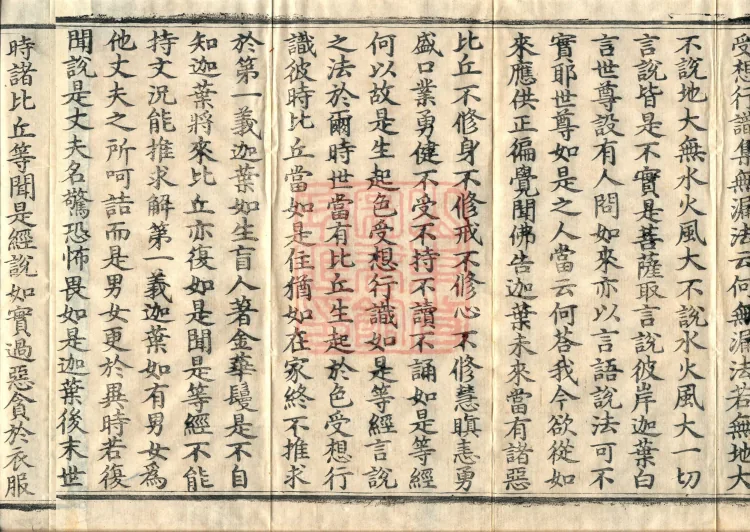 受想行識集無漏法云何無漏法若無地大
不說地大無水火風大不說水火風大一切
言說皆是不實是菩薩取言說彼岸迦葉白
言世尊設有人問如來亦以言語說法可不
實耶世尊如是之人當云何荅我今欲從如
來應供正徧覺聞佛告迦葉未來當有諸惡
比丘不修身不修戒不修心不修慧瞋恚勇
盛口業勇健不受不持不讀不誦如是等經
何以故是生起色受想行識如是等經言說
之法於爾時世當有比丘生起於色受想行
識彼時比丘當如是住猶如在家終不推求
於第一義迦葉如生盲人著金華鬘是不自
知迦葉將來比丘亦復如是聞是等經不能
持文況能推求解第一義迦葉如有男女為
他丈夫之所呵詰而是男女更於異時若復
聞說是丈夫名驚恐怖畏如是迦葉後末世
時諸比丘等聞是經說如實過惡貪於衣服